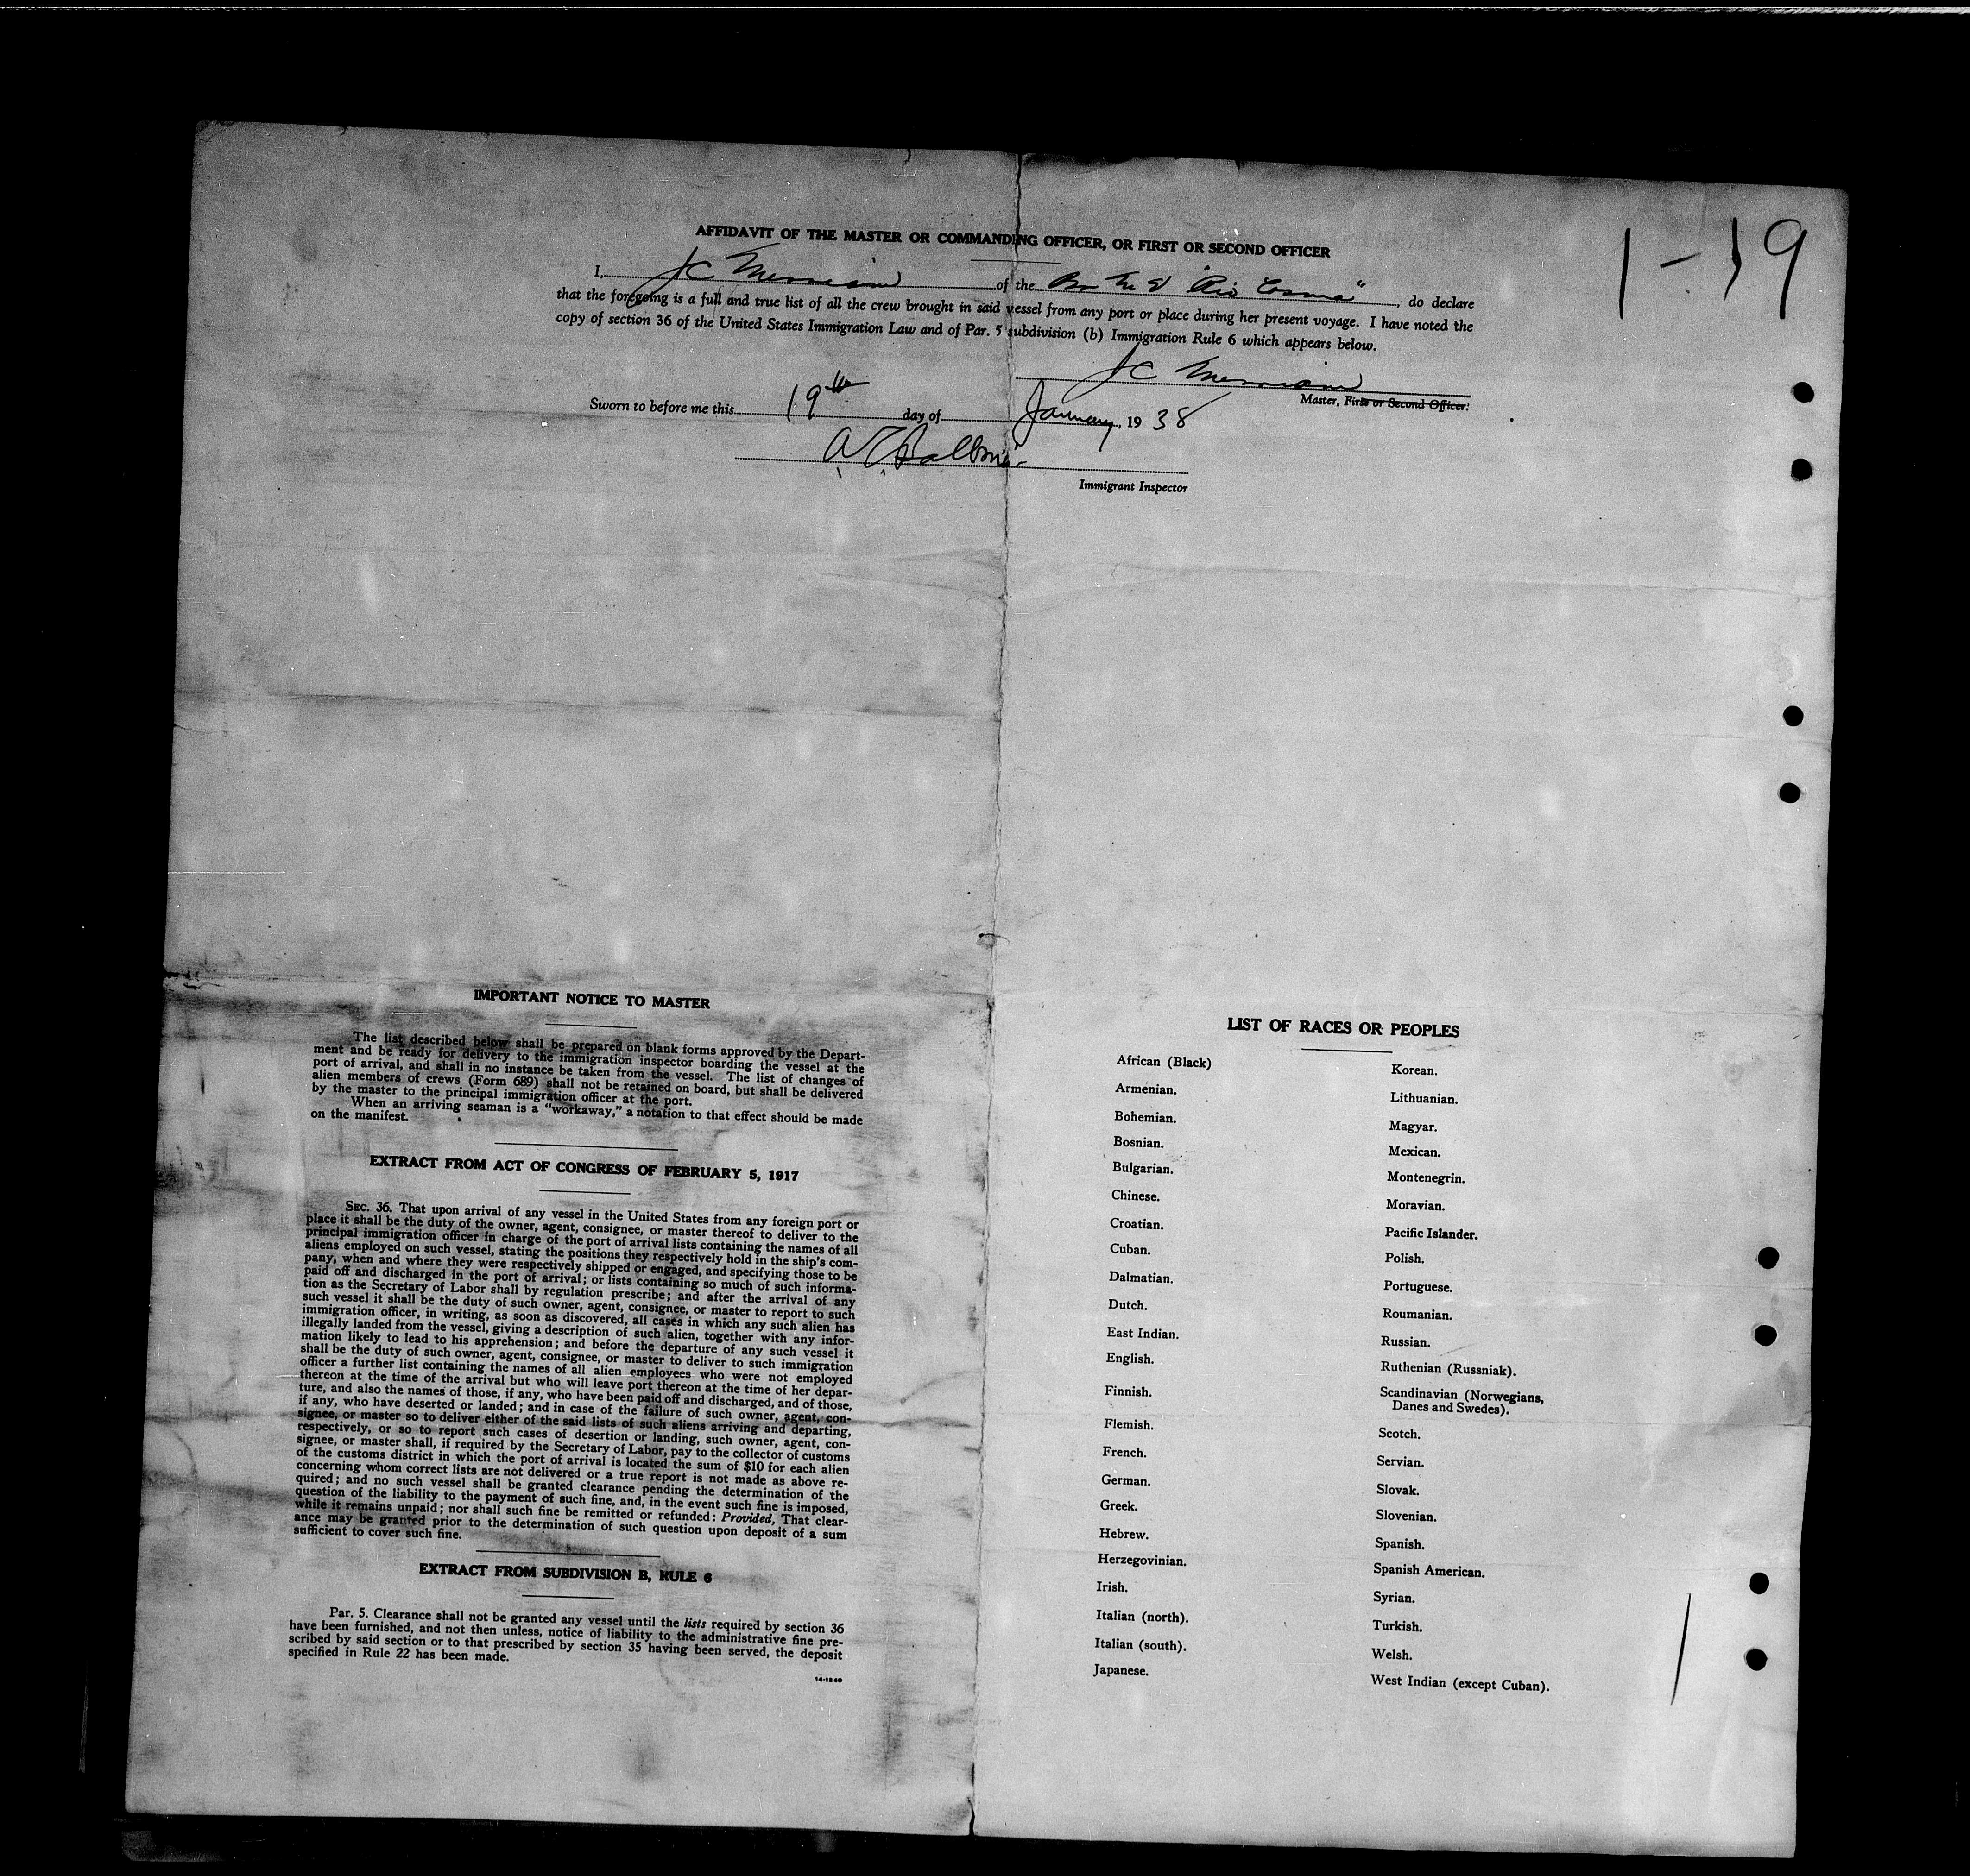 1-19
AFFIDAVIT OF THE MASTER OR COMMANDING OFFICER, OR FIRST OR SECOND OFFICER
I, J C of the "Rio , do declare
that the foregoing is a full and true list of all the crew brought in said vessel from any port or place during her present voyage. I have noted the
copy of section 36 of the United States Immigration Law and of Par. 5 subdivision (b) Immigration Rule 6 which appears below.
J C
Master, First or Second Officer.
Sworn to before me this 19th day of January, 1938
Immigrant Inspector
IMPORTANT NOTICE TO MASTER
The list described below shall be prepared on blank forms approved by the Depart-
ment and be ready for delivery to the immigration inspector boarding the vessel at the
port of arrival, and shall in no instance be taken from the vessel. The list of changes of
alien members of crews (Form 689) shall not be retained on board, but shall be delivered
by the master to the principal immigration officer at the port.
When an arriving seaman is a "workaway," a notation to that effect should be made
on the manifest.
EXTRACT FROM ACT OF CONGRESS OF FEBRUARY 5, 1917
SEC. 36. That upon arrival of any vessel in the United States from any foreign port or
place it shall be the duty of the owner, agent, consignee, or master thereof to deliver to the
principal immigration officer in charge of the port of arrival lists containing the names of all
aliens employed on such vessel, stating the positions they respectively hold in the ship's com-
pany, when and where they were respectively shipped or engaged, and specifying those to be
paid off and discharged in the port of arrival; or lists containing so much of such informa-
tion as the Secretary of Labor shall by regulation prescribe; and after the arrival of any
such vessel it shall be the duty of such owner, agent, consignee, or master to report to such
immigration officer, in writing, as soon as discovered, all cases in which any such alien has
illegally landed from the vessel, giving a description of such alien, together with any infor-
mation likely to lead to his apprehension; and before the departure of any such vessel it
shall be the duty of such owner, agent, consignee, or master to deliver to such immigration
officer a further list containing the names of all alien employees who were not employed
thereon at the time of the arrival but who will leave port thereon at the time of her depar-
ture, and also the names of those, if any, who have been paid off and discharged, and of those,
if any, who have deserted or landed; and in case of the failure of such owner, agent, con-
signee, or master so to deliver either of the said lists of such aliens arriving and departing,
respectively, or so to report such cases of desertion or landing, such owner, agent, con-
signee, or master shall, if required by the Secretary of Labor, pay to the collector of customs
of the customs district in which the port of arrival is located the sum of $10 for each alien
concerning whom correct lists are not delivered or a true report is not made as above re-
quired; and no such vessel shall be granted clearance pending the determination of the
question of the liability to the payment of such fine, and, in the event such fine is imposed,
while it remains unpaid; nor shall such fine be remitted or refunded: Provided, That clear-
ance may be granted prior to the determination of such question upon deposit of a sum
sufficient to cover such fine.
EXTRACT FROM SUBDIVISION B, RULE 6
Par. 5. Clearance shall not be granted any vessel until the lists required by section 36
have been furnished, and not then unless, notice of liability to the administrative fine pre-
scribed by said section or to that prescribed by section 35 having been served, the deposit
specified in Rule 22 has been made.
14-1240
LIST OF RACES OR PEOPLES
African (Black)
Armenian.
Bohemian.
Bosnian.
Bulgarian.
Chinese.
Croatian.
Cuban.
Dalmatian.
Dutch.
East Indian.
English.
Finnish.
Flemish.
French.
German.
Greek.
Hebrew.
Herzegovinian.
Irish.
Italian (north).
Italian (south).
Japanese.
Korean.
Lithuanian.
Magyar.
Mexican.
Montenegrin.
Moravian.
Pacific Islander.
Polish.
Portuguese.
Roumanian.
Russian.
Ruthenian (Russniak).
Scandinavian (Norwegians,
Danes and Swedes).
Scotch.
Servian.
Slovak.
Slovenian.
Spanish.
Spanish American.
Syrian.
Turkish.
Welsh.
West Indian (except Cuban).